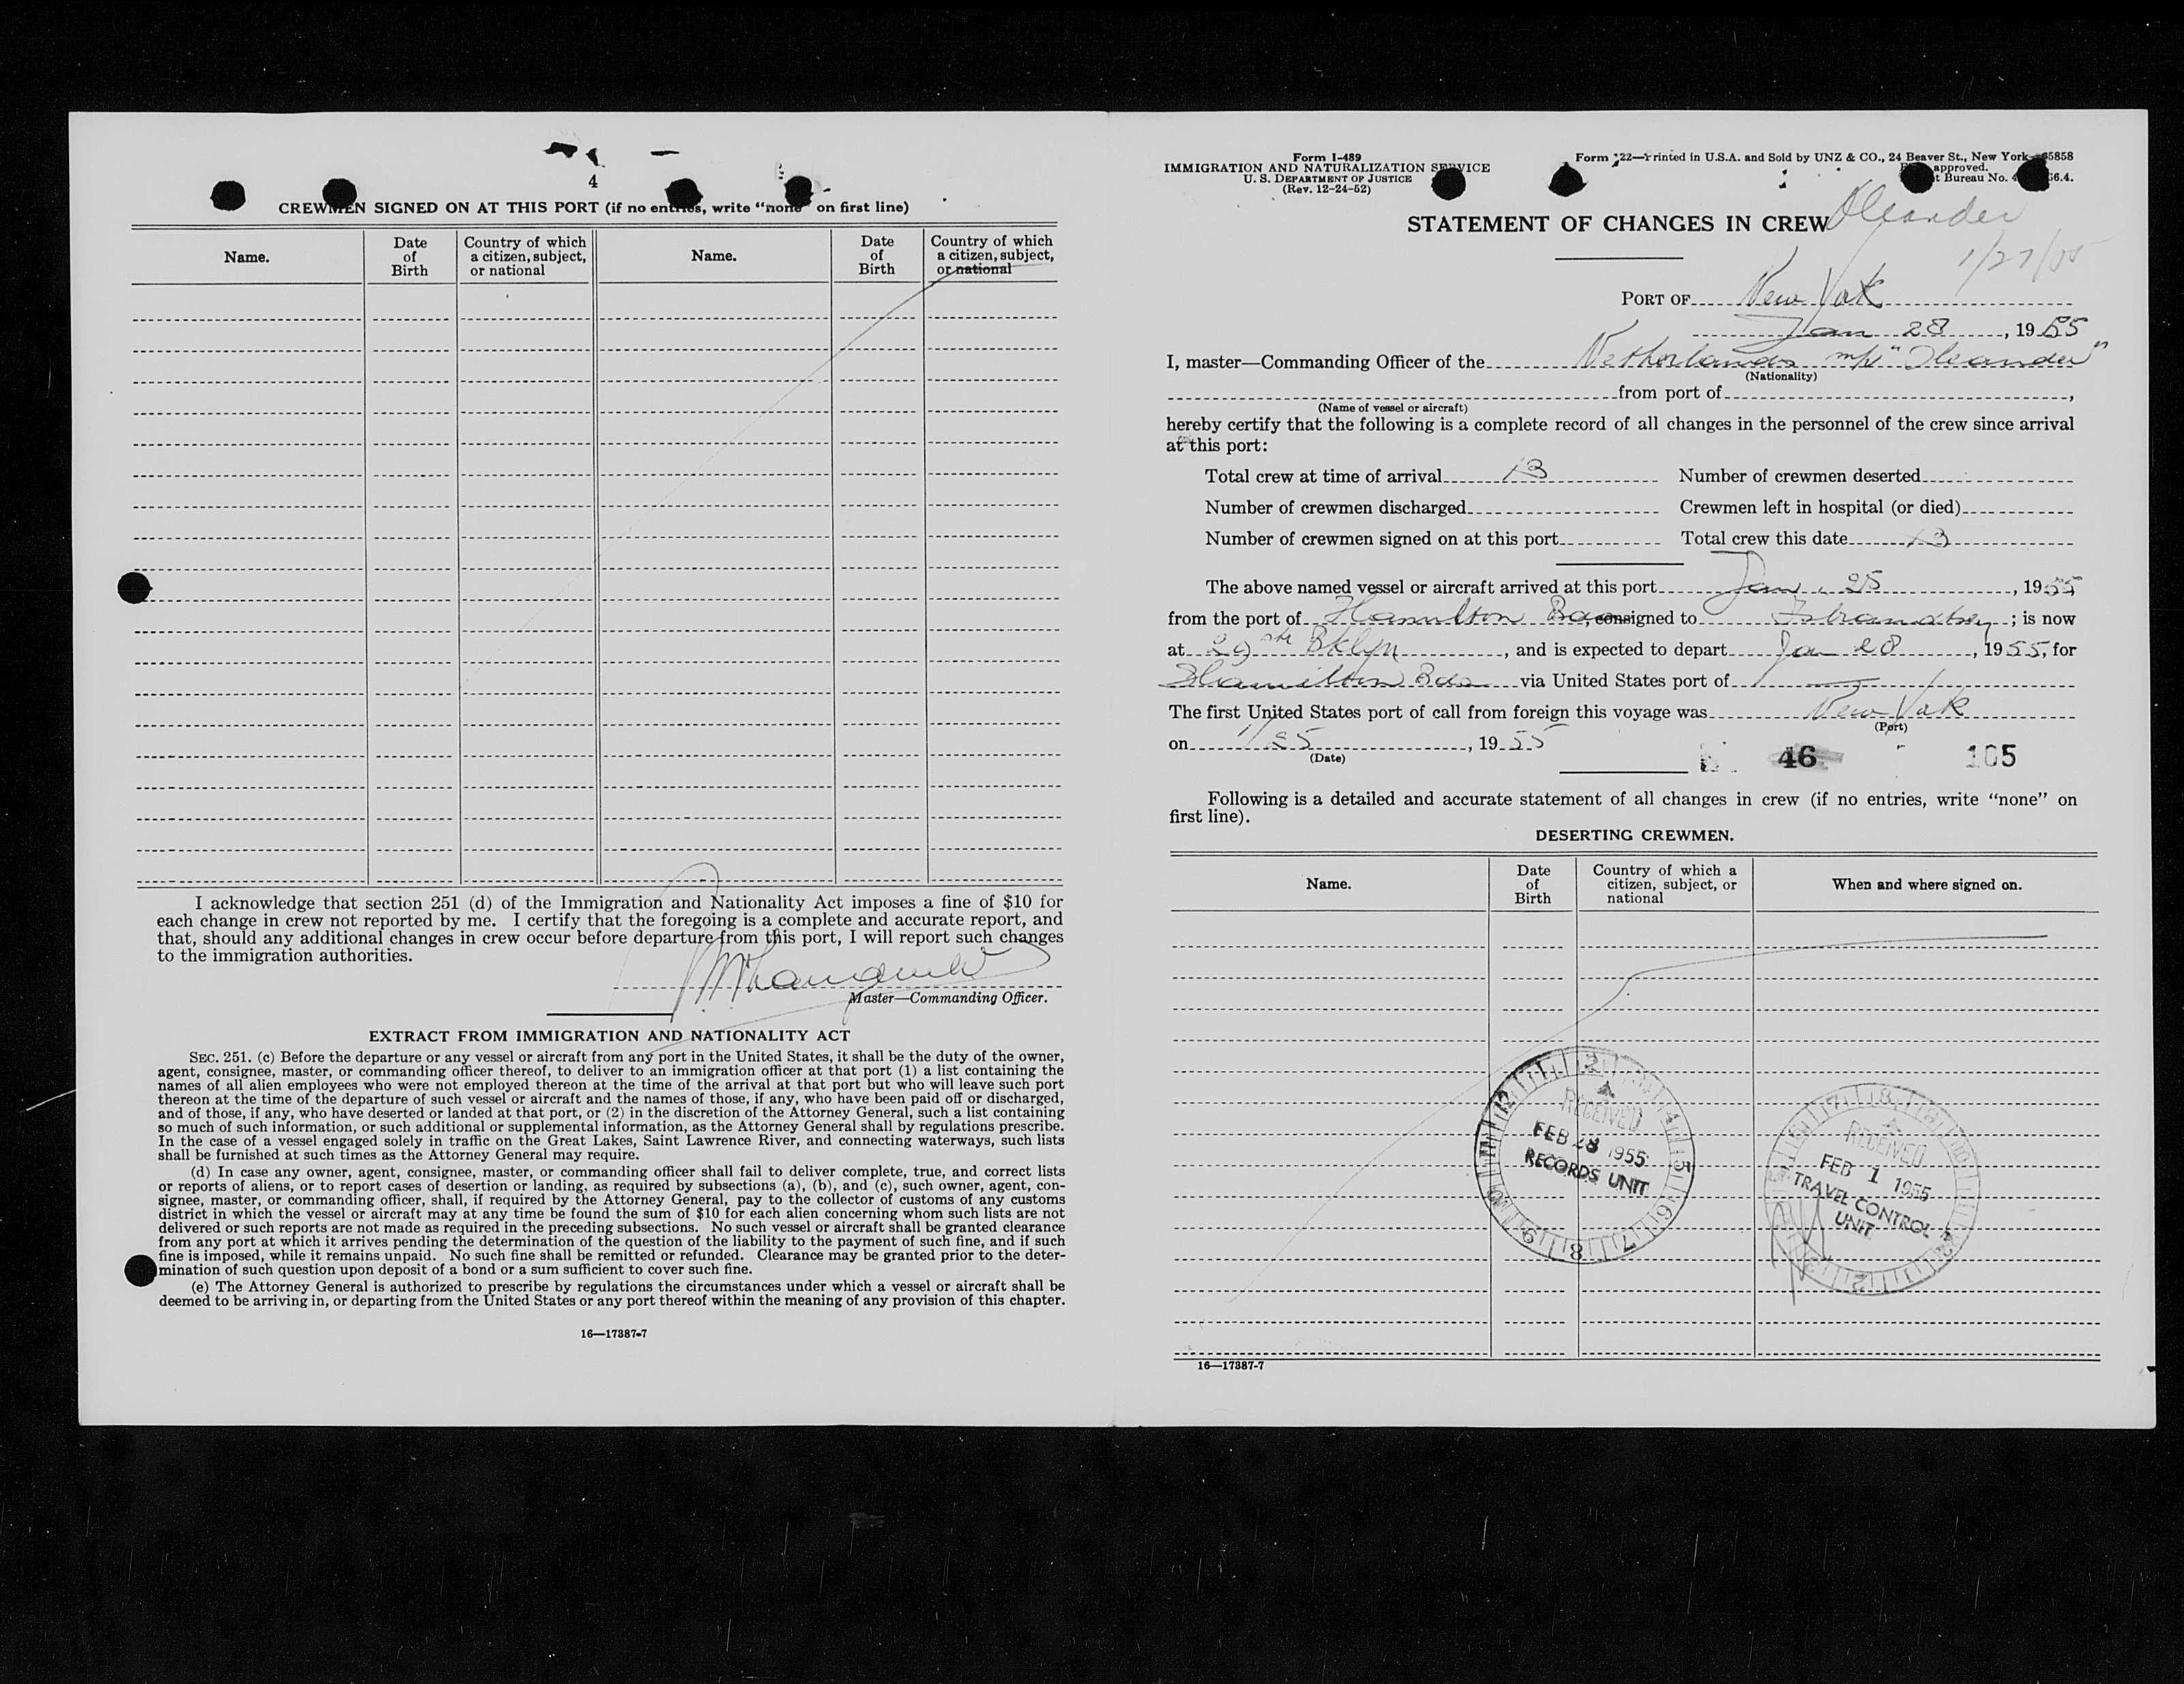 4
CREWMEN SIGNED ON AT THIS PORT (if no entries, write "none" on first line)
Name. Date of Birth Country of which a citizen, subject, or national Name. Date of Birth Country of which a citizen, subject, or national
I acknowledge that section 251 (d) of the Immigration and Nationality Act imposes a fine of $10 for
each change in crew not reported by me. I certify that the foregoing is a complete and accurate report, and
that, should any additional changes in crew occur before departure from this port, I will report such changes
to the immigration authorities.
Master—Commanding Officer.
EXTRACT FROM IMMIGRATION AND NATIONALITY ACT
SEC. 251. (c) Before the departure or any vessel or aircraft from any port in the United States, it shall be the duty of the owner,
agent, consignee, master, or commanding officer thereof, to deliver to an immigration officer at that port (1) a list containing the
names of all alien employees who were not employed thereon at the time of the arrival at that port but who will leave such port
thereon at the time of the departure of such vessel or aircraft and the names of those, if any, who have been paid off or discharged,
and of those, if any, who have deserted or landed at that port, or (2) in the discretion of the Attorney General, such a list containing
so much of such information, or such additional or supplemental information, as the Attorney General shall by regulations prescribe.
In the case of a vessel engaged solely in traffic on the Great Lakes, Saint Lawrence River, and connecting waterways, such lists
shall be furnished at such times as the Attorney General may require.
(d) In case any owner, agent, consignee, master, or commanding officer shall fail to deliver complete, true, and correct lists
or reports of aliens, or to report cases of desertion or landing, as required by subsections (a), (b), and (c), such owner, agent, con-
signee, master, or commanding officer, shall, if required by the Attorney General, pay to the collector of customs of any customs
district in which the vessel or aircraft may at any time be found the sum of $10 for each alien concerning whom such lists are not
delivered or such reports are not made as required in the preceding subsections. No such vessel or aircraft shall be granted clearance
from any port at which it arrives pending the determination of the question of the liability to the payment of such fine, and if such
fine is imposed, while it remains unpaid. No such fine shall be remitted or refunded. Clearance may be granted prior to the deter-
mination of such question upon deposit of a bond or a sum sufficient to cover such fine.
(e) The Attorney General is authorized to prescribe by regulations the circumstances under which a vessel or aircraft shall be
deemed to be arriving in, or departing from the United States or any port thereof within the meaning of any provision of this chapter.
16—17387-7
Form I-489
IMMIGRATION AND NATURALIZATION SERVICE
U. S. DEPARTMENT OF JUSTICE
(Rev. 12-24-52)
Form 22—Printed in U.S.A. and Sold by UNZ & CO., 24 Beaver St., New York 65858
approved.
Bureau No. 4 56.4.
STATEMENT OF CHANGES IN CREW Oleander
1/27/55
PORT OF New York
Jan 28, 1955
I, master—Commanding Officer of the Netherlands "Oleander"
(Nationality)
from port of ,
(Name of vessel or aircraft)
hereby certify that the following is a complete record of all changes in the personnel of the crew since arrival
at this port:
Total crew at time of arrival 13 Number of crewmen deserted
Number of crewmen discharged Crewmen left in hospital (or died)
Number of crewmen signed on at this port Total crew this date 13
The above named vessel or aircraft arrived at this port Jan. 25, 1955
from the port of Hamilton Bda, consigned to ; is now
at 29th Bklyn, and is expected to depart Jan 28, 1955, for
Hamilton Bda via United States port of
The first United States port of call from foreign this voyage was New York
(Port)
on 1/25, 1955
(Date)
46 105
Following is a detailed and accurate statement of all changes in crew (if no entries, write "none" on
first line).
DESERTING CREWMEN.
Name. Date of Birth Country of which a citizen, subject, or national When and where signed on.
RECEIVED
FEB 28 1955
RECORDS UNIT
RECEIVED
FEB 1 1955
TRAVEL CONTROL
UNIT
16—17387-7